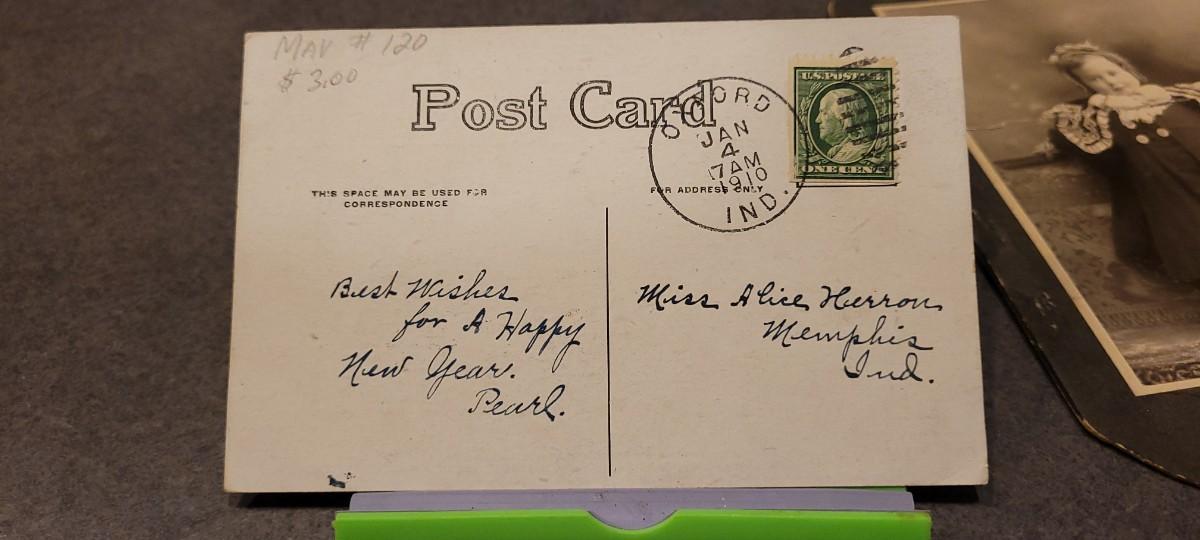 MAV # 120
$ 3.00
Post Card
U.S. POSTAGE
ONE CENT
OXFORD
JAN
4
7 AM
1910
IND.
THIS SPACE MAY BE USED FOR
CORRESPONDENCE
FOR ADDRESS ONLY
Best Wishes
for A Happy
New Year.
Pearl.
Miss Alice Herron
Memphis
Ind.